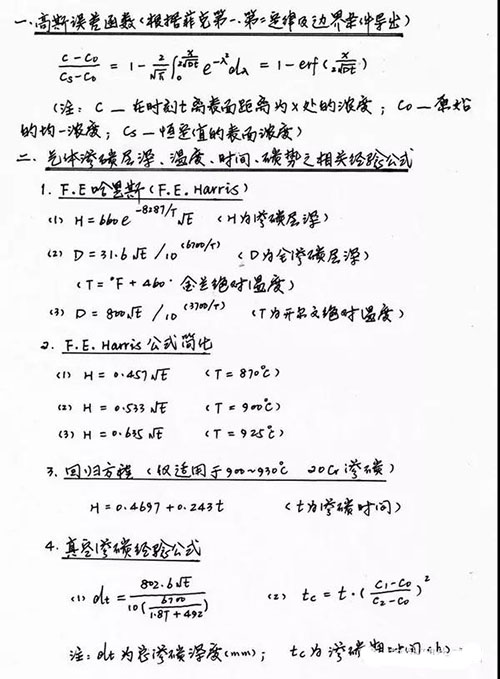 一.高斯误差函数(根据菲克第一、第二定律及边界条件导出)
(C-C₀)/(Cs-C₀) = 1 - (2/√π)∫₀^(x/(2√(Dt))) e^(-λ²)dλ = 1 - erf(x/(2√(Dt)))
(注: C — 在时刻t离表面距离为x处的浓度; C₀ — 原始
的均一浓度; Cs — 恒定值的表面浓度)
二. 气体渗碳层深、温度、时间、碳势之相关经验公式
1. F.E哈里斯(F.E. Harris)
(1) H = 660e^(-8287/T)√t (H为渗碳层深)
(2) D = 31.6√t / 10^(6700/T) (D为全渗碳层深)
(T = °F + 460· 兰金绝对温度)
(3) D = 800√t / 10^(3700/T) (T为开尔文绝对温度)
2. F.E. Harris 公式简化
(1) H = 0.457√t (T = 870℃)
(2) H = 0.533√t (T = 900℃)
(3) H = 0.635√t (T = 925℃)
3. 回归方程 (仅适用于900~930℃ 20Cr 渗碳)
H = 0.4697 + 0.243t (t为渗碳时间)
4. 真空渗碳经验公式
(1) dt = 802.6√t / 10^(6700/(1.8T+492)) (2) tc = t·((C₁-C₀)/(C₂-C₀))²
注: dt为总渗碳深度(mm); tc为渗碳期时间(h)